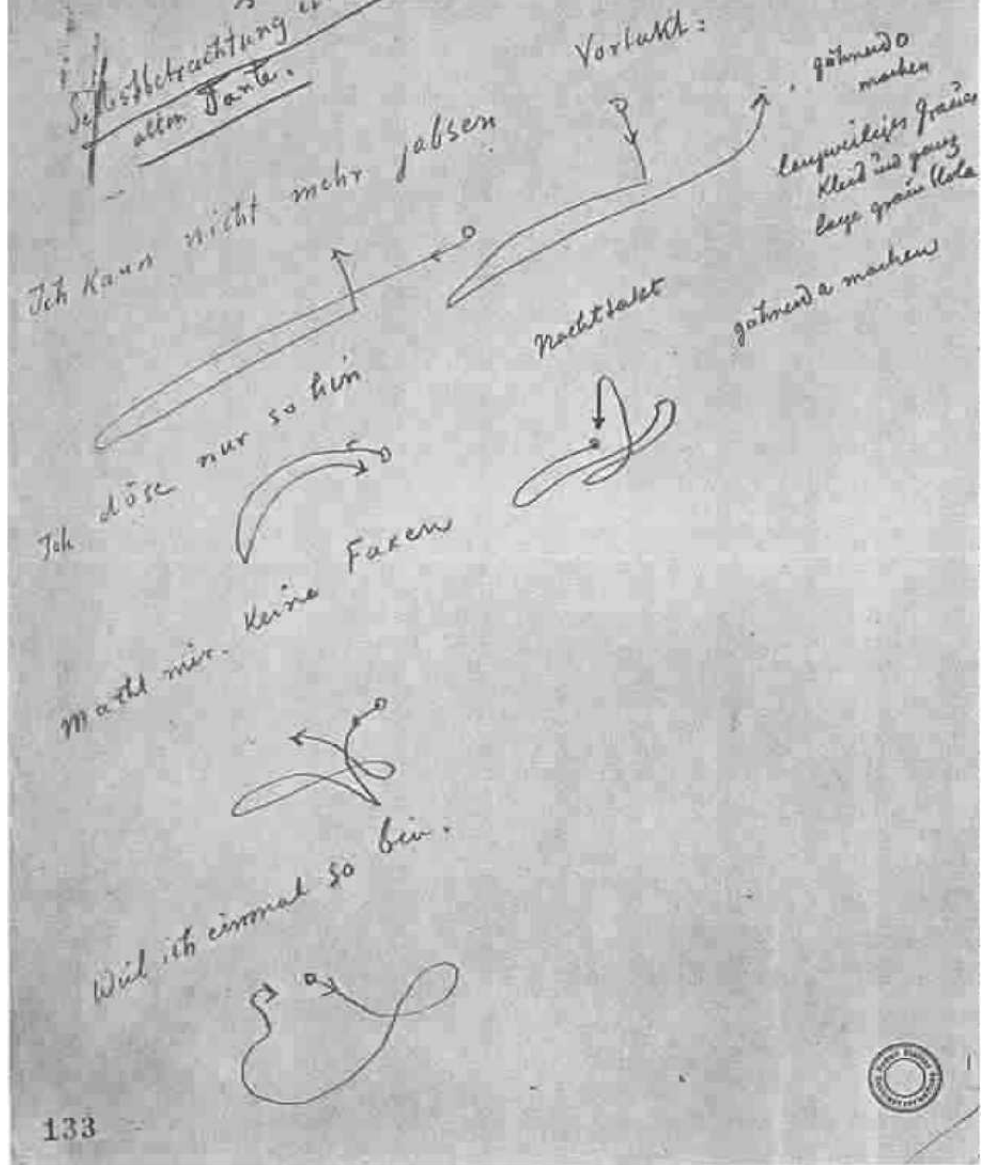 Selbstbetrachtung
alten Tante.
Vortakt:
gähnend o
machen
langweiliges graues
Kleid und ganz
graue
Ich kann nicht mehr jabsen
Nachttakt
gähnend a machen
Ich döse nur so hin
Macht mir keine Faxen
Weil ich einmal so bin.
133